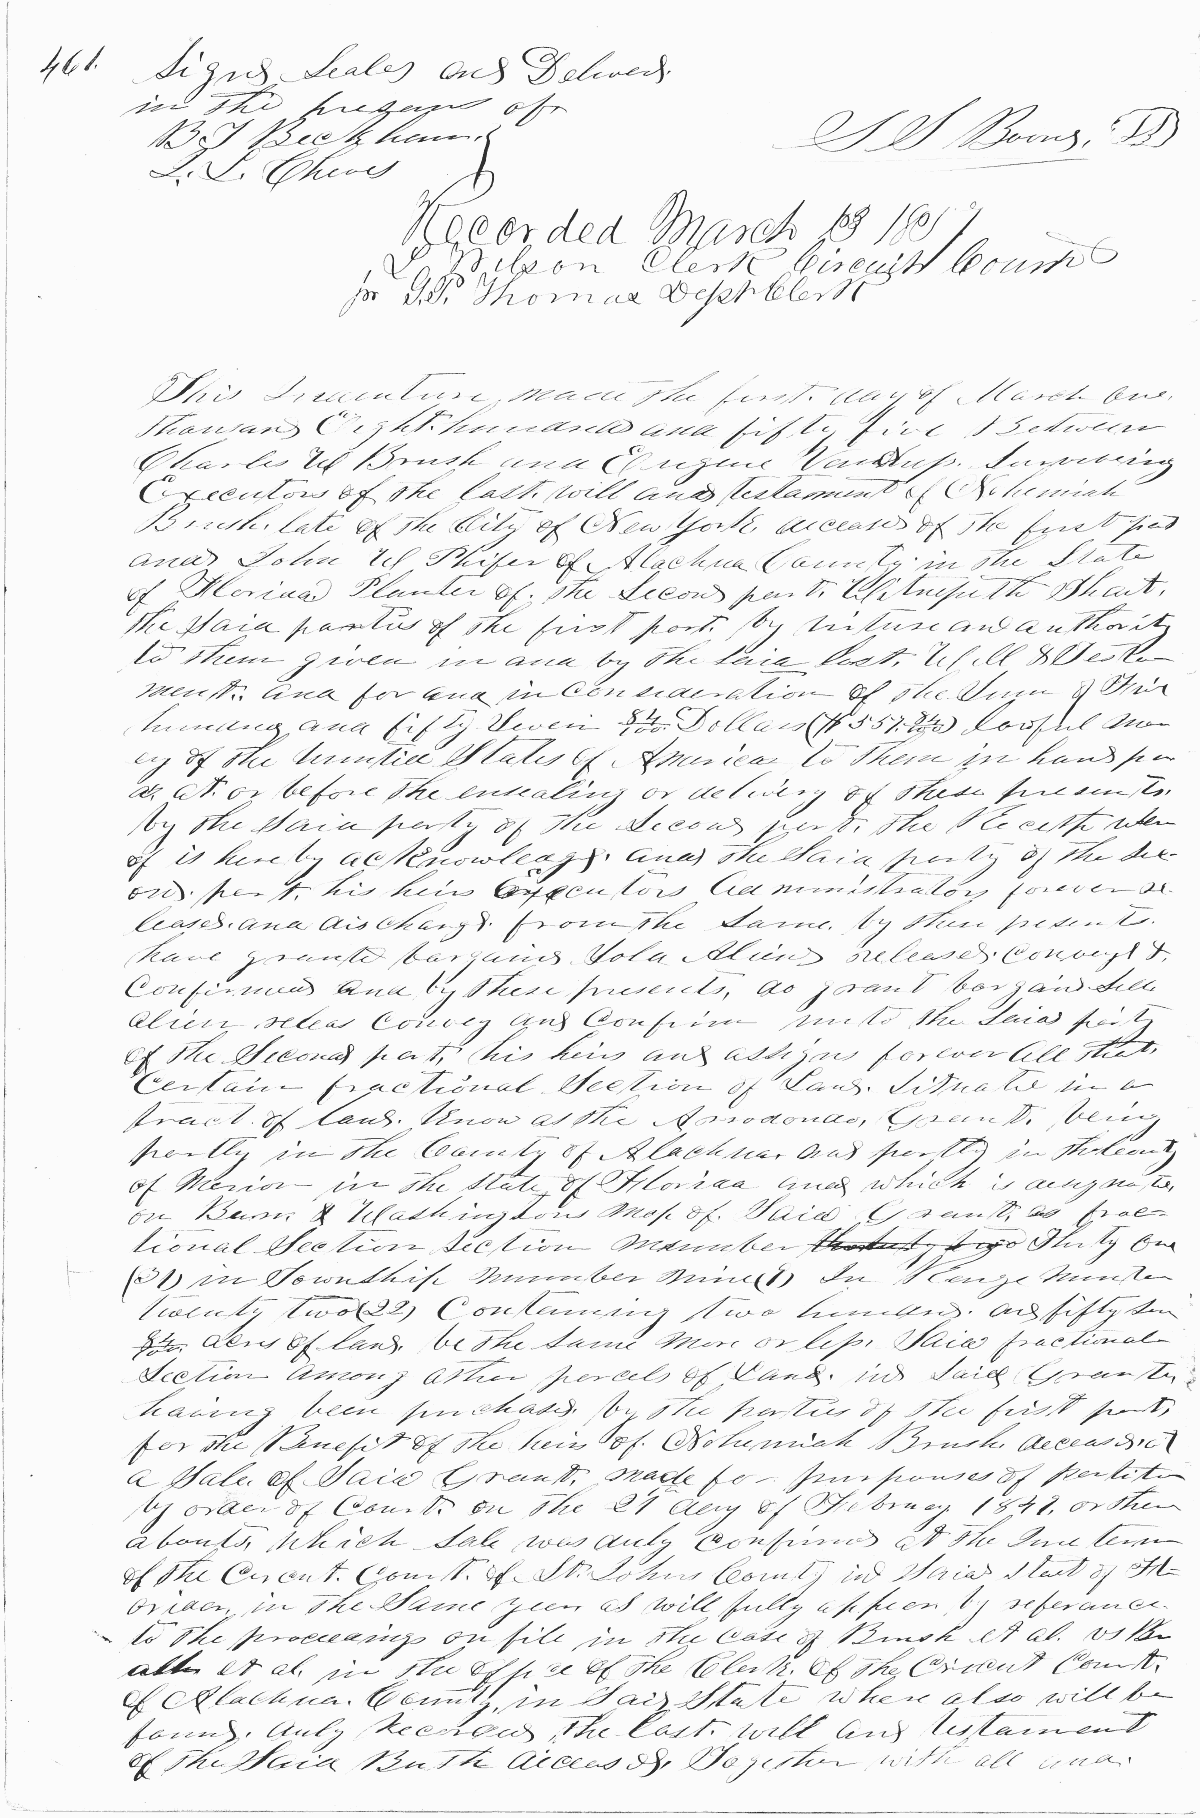 461.
Signd Seales and Deliverd
in the presens of
B J Beckham
L. L. Cheves
S S Boons,
Recorded March 13 1857
L Wilson Clerk Circuit Court
for G.P. Thomas Dept Clerk
This Indenture, made the first day of March One
thousand Eight hundred and fifty five Between
Charles W Brush and Eugene Surviving
Executors of the last will and testament of Nehemiah
Brush, late of the City of New York deceased of the first part
and John W Phifer of Alachua County in the State
of Florida Planter of the Second part. Witnesseth That,
the Said parties of the first part, by virture and authority
to them given in and by the Said last, Will & Testa
ment. and for and in Consideration of the Sum of Five
hundred and fifty Seven 84/100 Dollars ($557.84/100) lawful mon
ey of the Uunitid States of America to them in hand pai
d, at or before the ensealing or delivery of these presents.
by the Said party of the Second part, the Receitp wher
of is here by acknowledgd. and the Said party of the Sec
ond. part, his heirs Executors Administrators forever re
leased. and dischargd. from the Same, by these presents.
have grantd bargained Sold Aliend released. Conveyd &.
Confirmed and by these presents, do grant bargain Sell
alien releas Convey and Confirm unto the Said party
of the Second part, his heirs and assigns forever All that.
Certain fractional Section of Land. Situate in a
tract of land. Know as the Arrodondo, Grant, being
partly in the County of Alachua and partly in the County
of Marion in the State of Florida and which is designate,
on Burr & Washingtons Map of. Said Grant, as frac-
tional Section Section Mumnber thirty two Thirty One
(31) in Township Number Nine (9) In Range Number
twenty two (22) Containing two hundred. and fifty Seven
84/100. acres of land, be the Same More or less, Said fractional
Section among other parcels of Land. in Said Grant,
having been purchased. by the parties of the first part,
for the Benefit of the heirs of. Nehemiah Brush deceased. at
a Sale. of Said Grant, made for purpouses of partition
by order of Court. on the 21 day of Februay 1849. or there
abouts, Which Sale was duly Confirmed at the June term
of the Circut. Court. of St. Johns County in Said State of Fl
orida, in the Same year as will fully appear by referance
to the proceedings on file in the case of Brush et al. vs
et al. in the office of the Clerk. of the Circut Court.
of Alachua. County, in Said State where also will be
found. duly Recorded, the last. will and testament
of the Said Brush deceased, Together with all and.